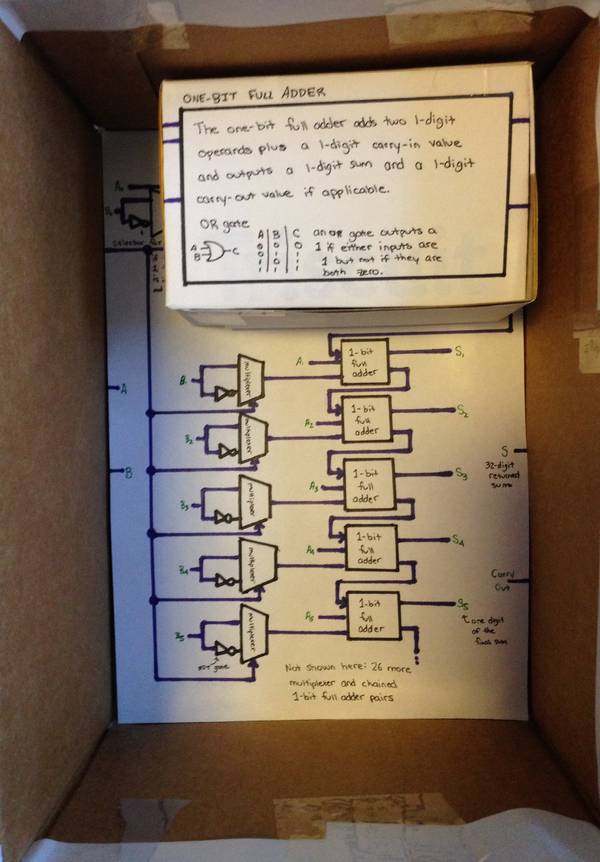 ONE-BIT FULL ADDER
The one-bit full adder adds two 1-digit
operands plus a 1-digit carry-in value
and outputs a 1-digit sum and a 1-digit
carry-out value if applicable.
OR gate
A B C
A
B
C
0 0 0
an OR gate outputs a
1 if either inputs are
1 but not if they are
both zero.
A₀
selector
A
B
B₁
multiplexer
A₁
1-bit
full
adder
S₁
B₂
multiplexer
A₂
1-bit
full
adder
S₂
B₃
multiplexer
A₃
1-bit
full
adder
S₃
B₄
multiplexer
A₄
1-bit
full
adder
S₄
B₅
multiplexer
A₅
1-bit
full
adder
S₅
NOT gate
S
32-digit
returned
sum
Carry
Out
one digit
of the
final sum
Not shown here: 26 more
multiplexer and chained
1-bit full adder pairs